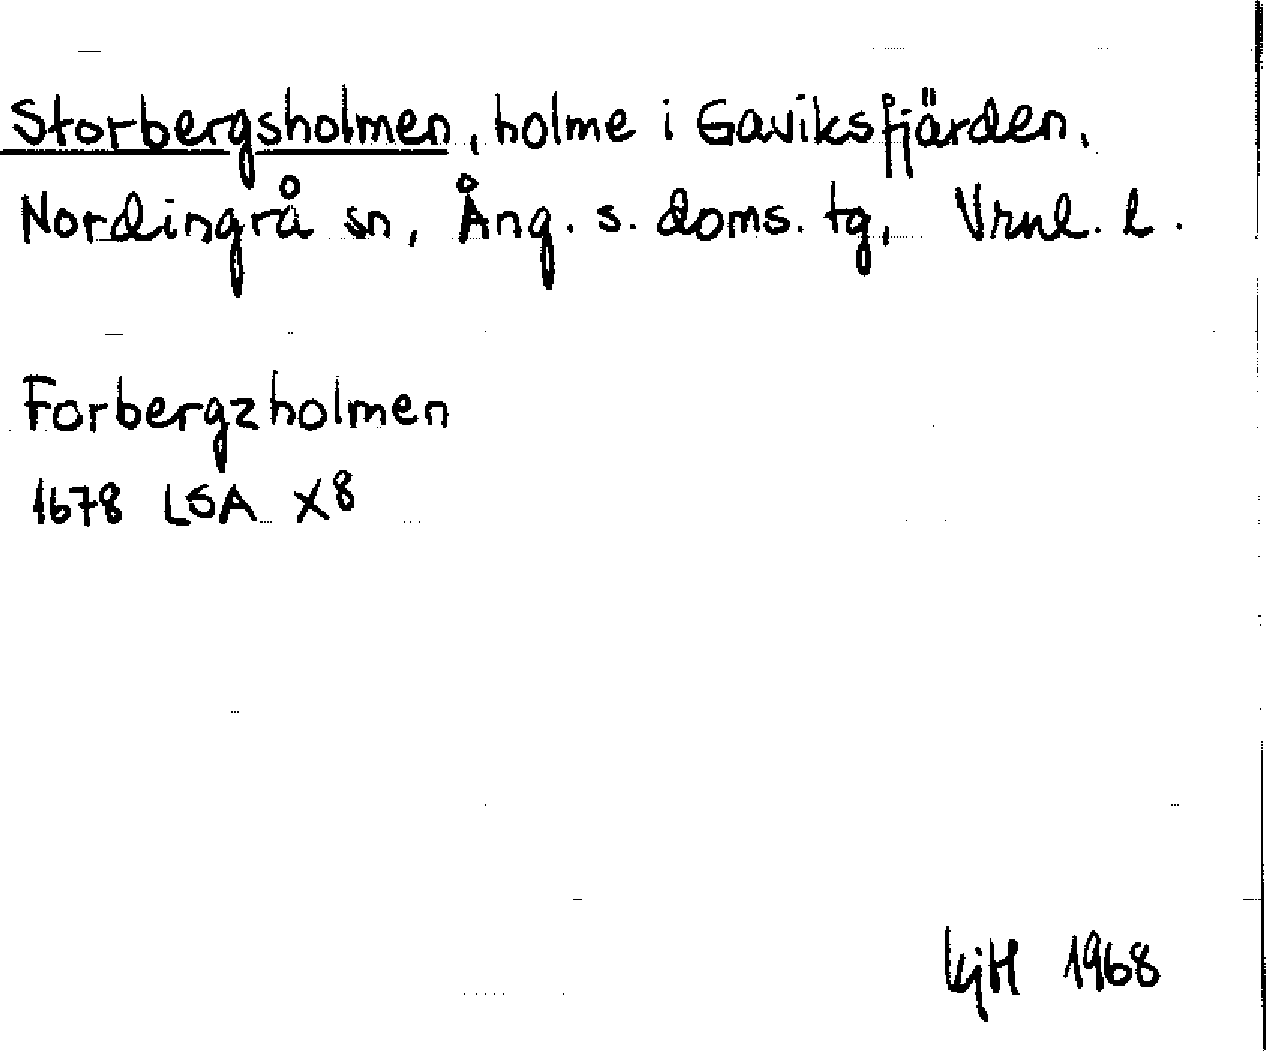 Storbergsholmen, holme i Gaviksfjärden,
Nordingrå sn, Ång. s. doms. tg, Vrnl. l.
Forbergzholmen
1678 LSA X8
KjH 1968